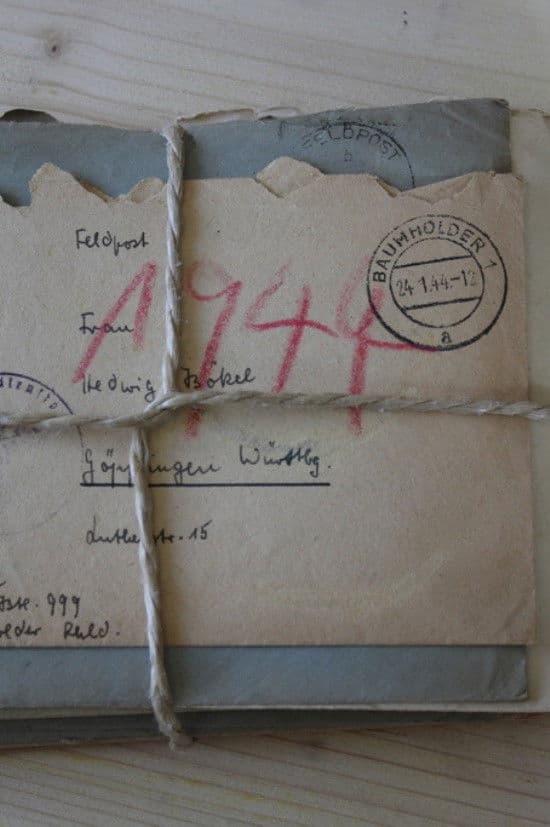 FELDPOST
b
Feldpost
BAUMHOLDER 1
24.1.44.-12
a
1944
Frau
Hedwig Bökel
Göppingen Württbg.
str. 15
999